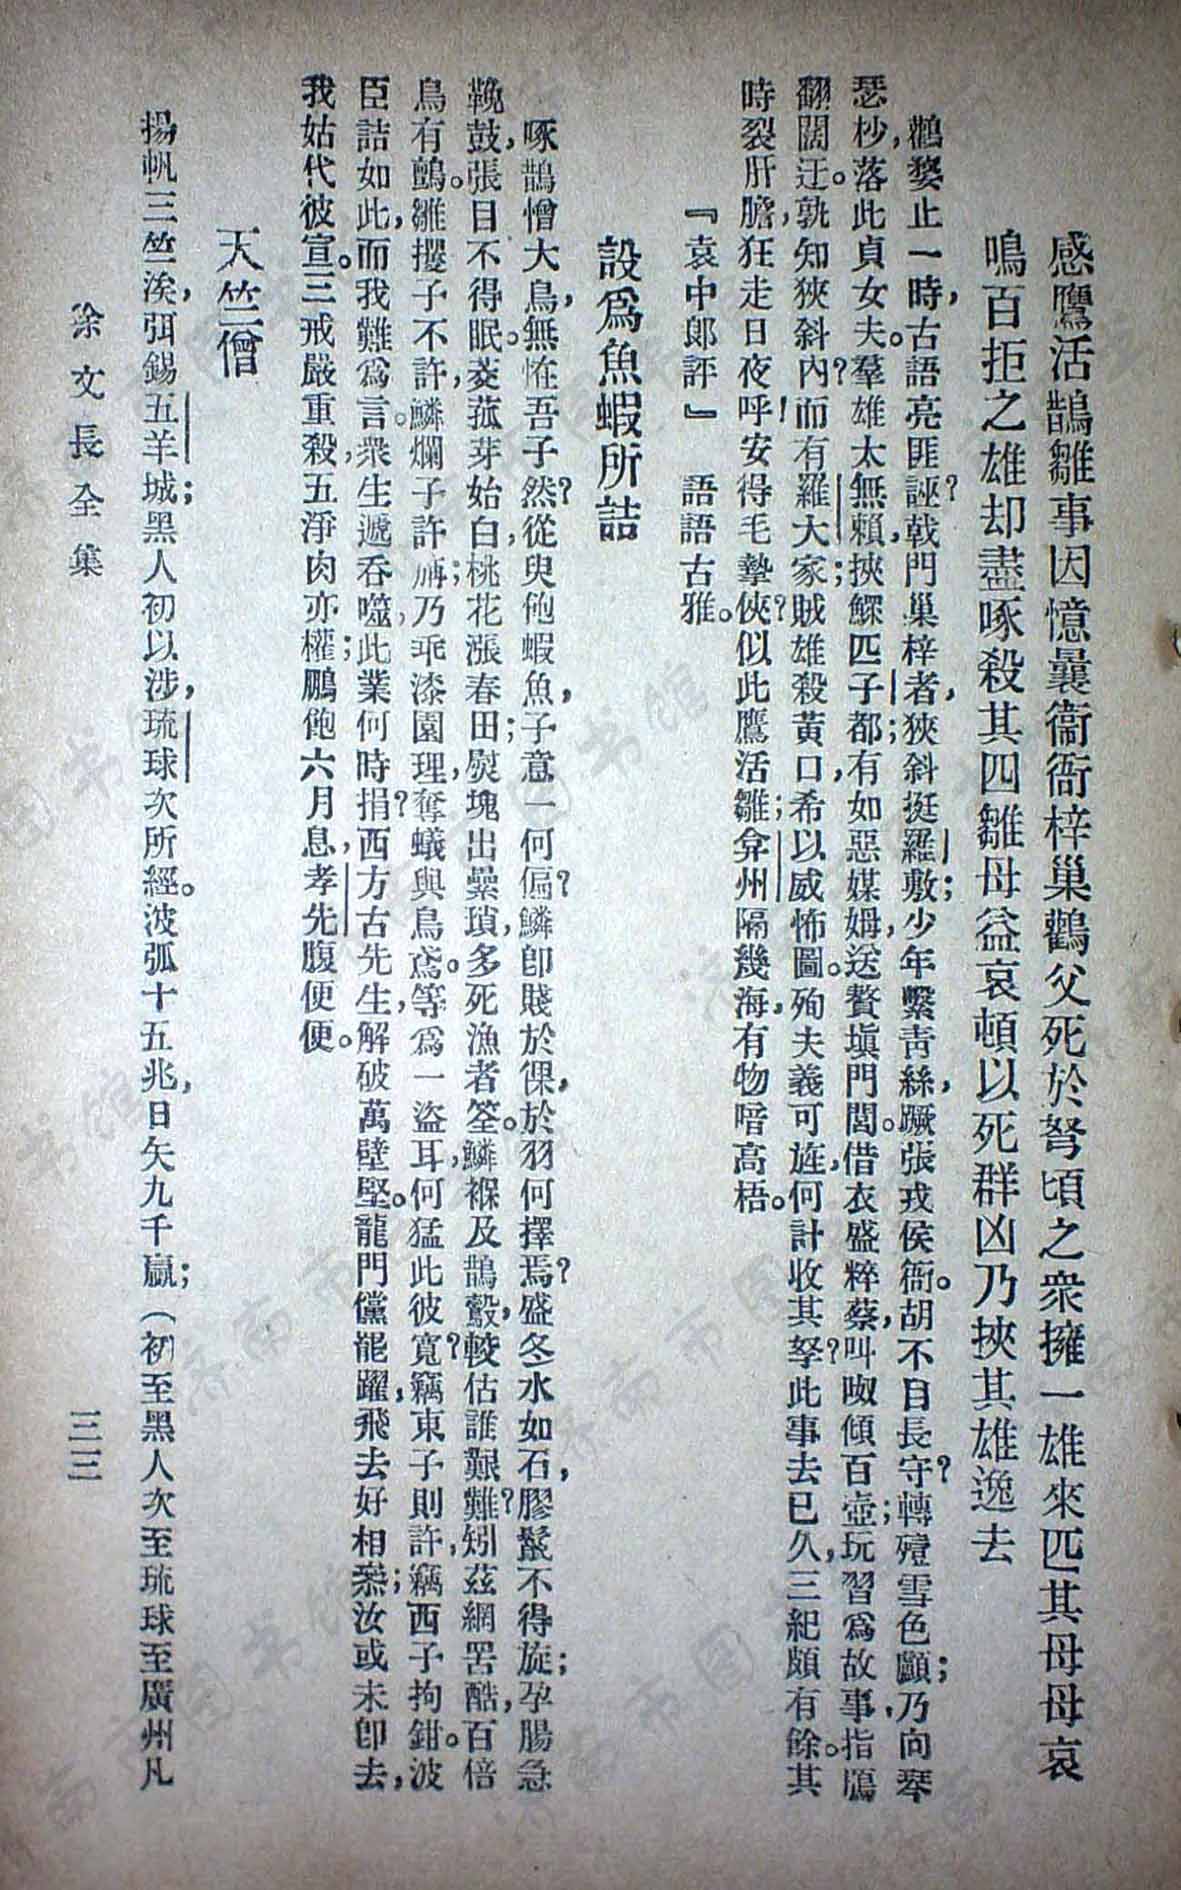 感鷹活鵲雛事因憶曩衞衙梓巢鸛父死於弩頃之衆擁一雄來匹其母母哀
鳴百拒之雄却盡啄殺其四雛母益哀頓以死群凶乃挾其雄逸去
鸛婺止一時，古語亮匪誣？戟門巢梓者，狹斜挺羅敷；少年繫青絲，蹶張戎侯衙。胡不日長守？轉殪雪色顱；乃向琴
瑟杪，落此貞女夫。羣雄太無賴，挾鰥匹子都；有如惡媒姆，送贅塡門閭。借衣盛粹蔡，叫呶傾百壺；玩習爲故事，指鴈
翻闊迂。孰知狹斜內？而有羅大家！賊雄殺黃口，希以威怖圖。殉夫義可旌，何計收其孥？此事去已久，三紀頗有餘。其
時裂肝膽，狂走日夜呼！安得毛摯俠？似此鷹活雛；弇州隔幾海，有物喑高梧。
『袁中郞評』　語語古雅。
設爲魚蝦所詰
啄鵲憎大鳥，無怪吾子然？從臾飽蝦魚，子意一何偏？鱗卽賤於倮，於羽何擇焉？盛冬水如石，膠鬣不得旋；孕腸急
鞔鼓，張目不得眠。菱菰芽始白，桃花漲春田；熨塊出纍瑣，多死漁者筌。鱗褓及鵲鷇，較估誰艱難？矧茲網罟酷，百倍
鳥有鸇。雛攫子不許，鱗爛子許旃；乃乖漆園理，奪蟻與鳥鳶。等爲一盜耳，何猛此彼寬？竊東子則許，竊西子拘鉗。波
臣詰如此，而我難爲言。衆生遞吞噬，此業何時捐？西方古先生，解破萬壁堅。龍門儻能躍，飛去好相叅；汝或未卽去，
我姑代彼宣。三戒嚴重殺，五淨肉亦權；鵬飽六月息，孝先腹便便。
天竺僧
揚帆三竺涘，弭錫五羊城；黑人初以涉，琉球次所經。波弧十五兆，日矢九千贏；（初至黑人次至琉球至廣州凡
徐文長全集
三三